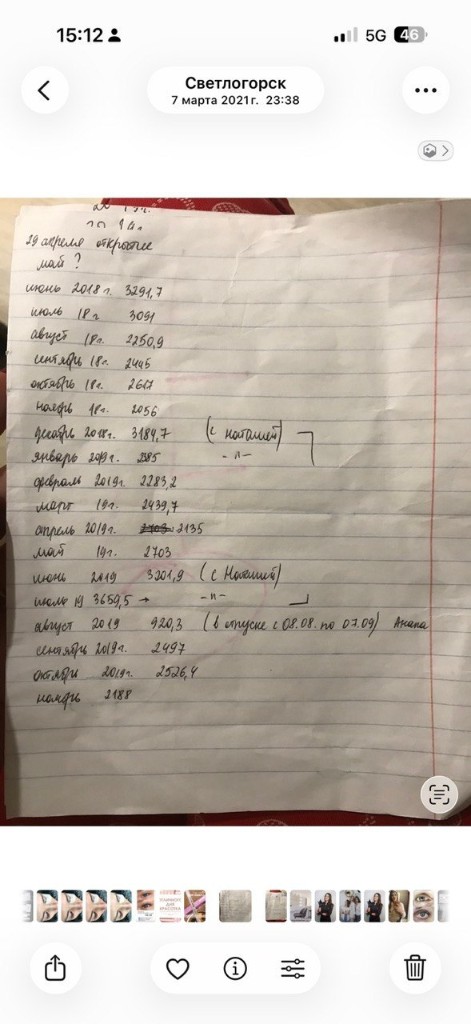 15:12
5G 46
Светлогорск
7 марта 2021 г. 23:38
29 апреля открытие
май ?
июнь 2018 г. 3291,7
июль 18 г. 3091
август 18г. 2250,9
сентябрь 18г. 2445
октябрь 18г. 2617
ноябрь 18г. 2056
декабрь 2018г. 3184,7 (с наташей)
январь 2019г. 2385 -"-
февраль 2019г. 2283,2
март 19г. 2439,7
апрель 2019г. 2135
май 19г. 2703
июнь 2019 3201,9 (с Наташей)
июль 19 3659,5 → -"-
август 2019 920,3 (в отпуске с 08.08. по 07.09) Анапа
сентябрь 2019г. 2497
октябрь 2019г. 2526,4
ноябрь 2188